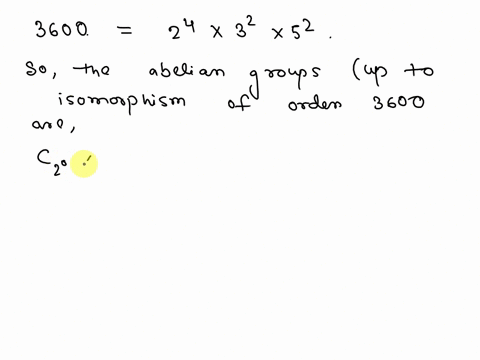 3600 = 2⁴ × 3² × 5².
So, the abelian groups (up to
isomorphism of order 3600
are,
C₂₀